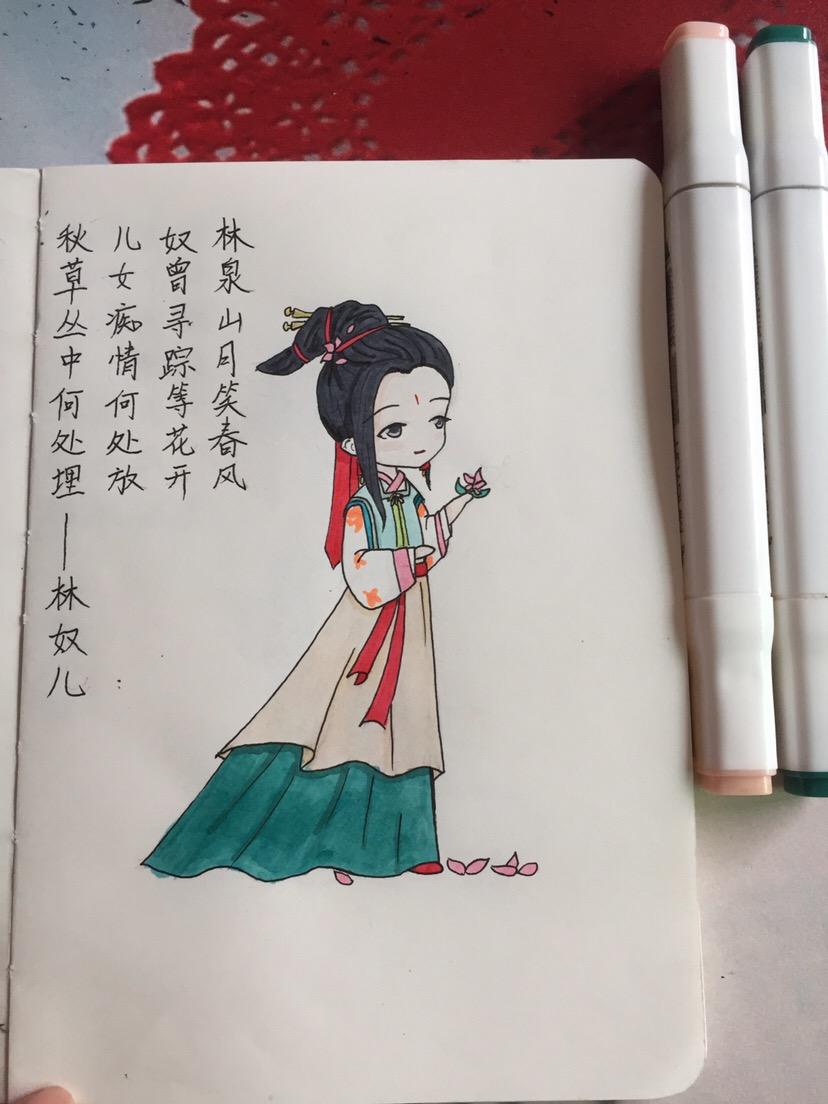 林泉山月笑春风
奴曾寻踪等花开
儿女痴情何处放
秋草丛中何处埋—林奴儿